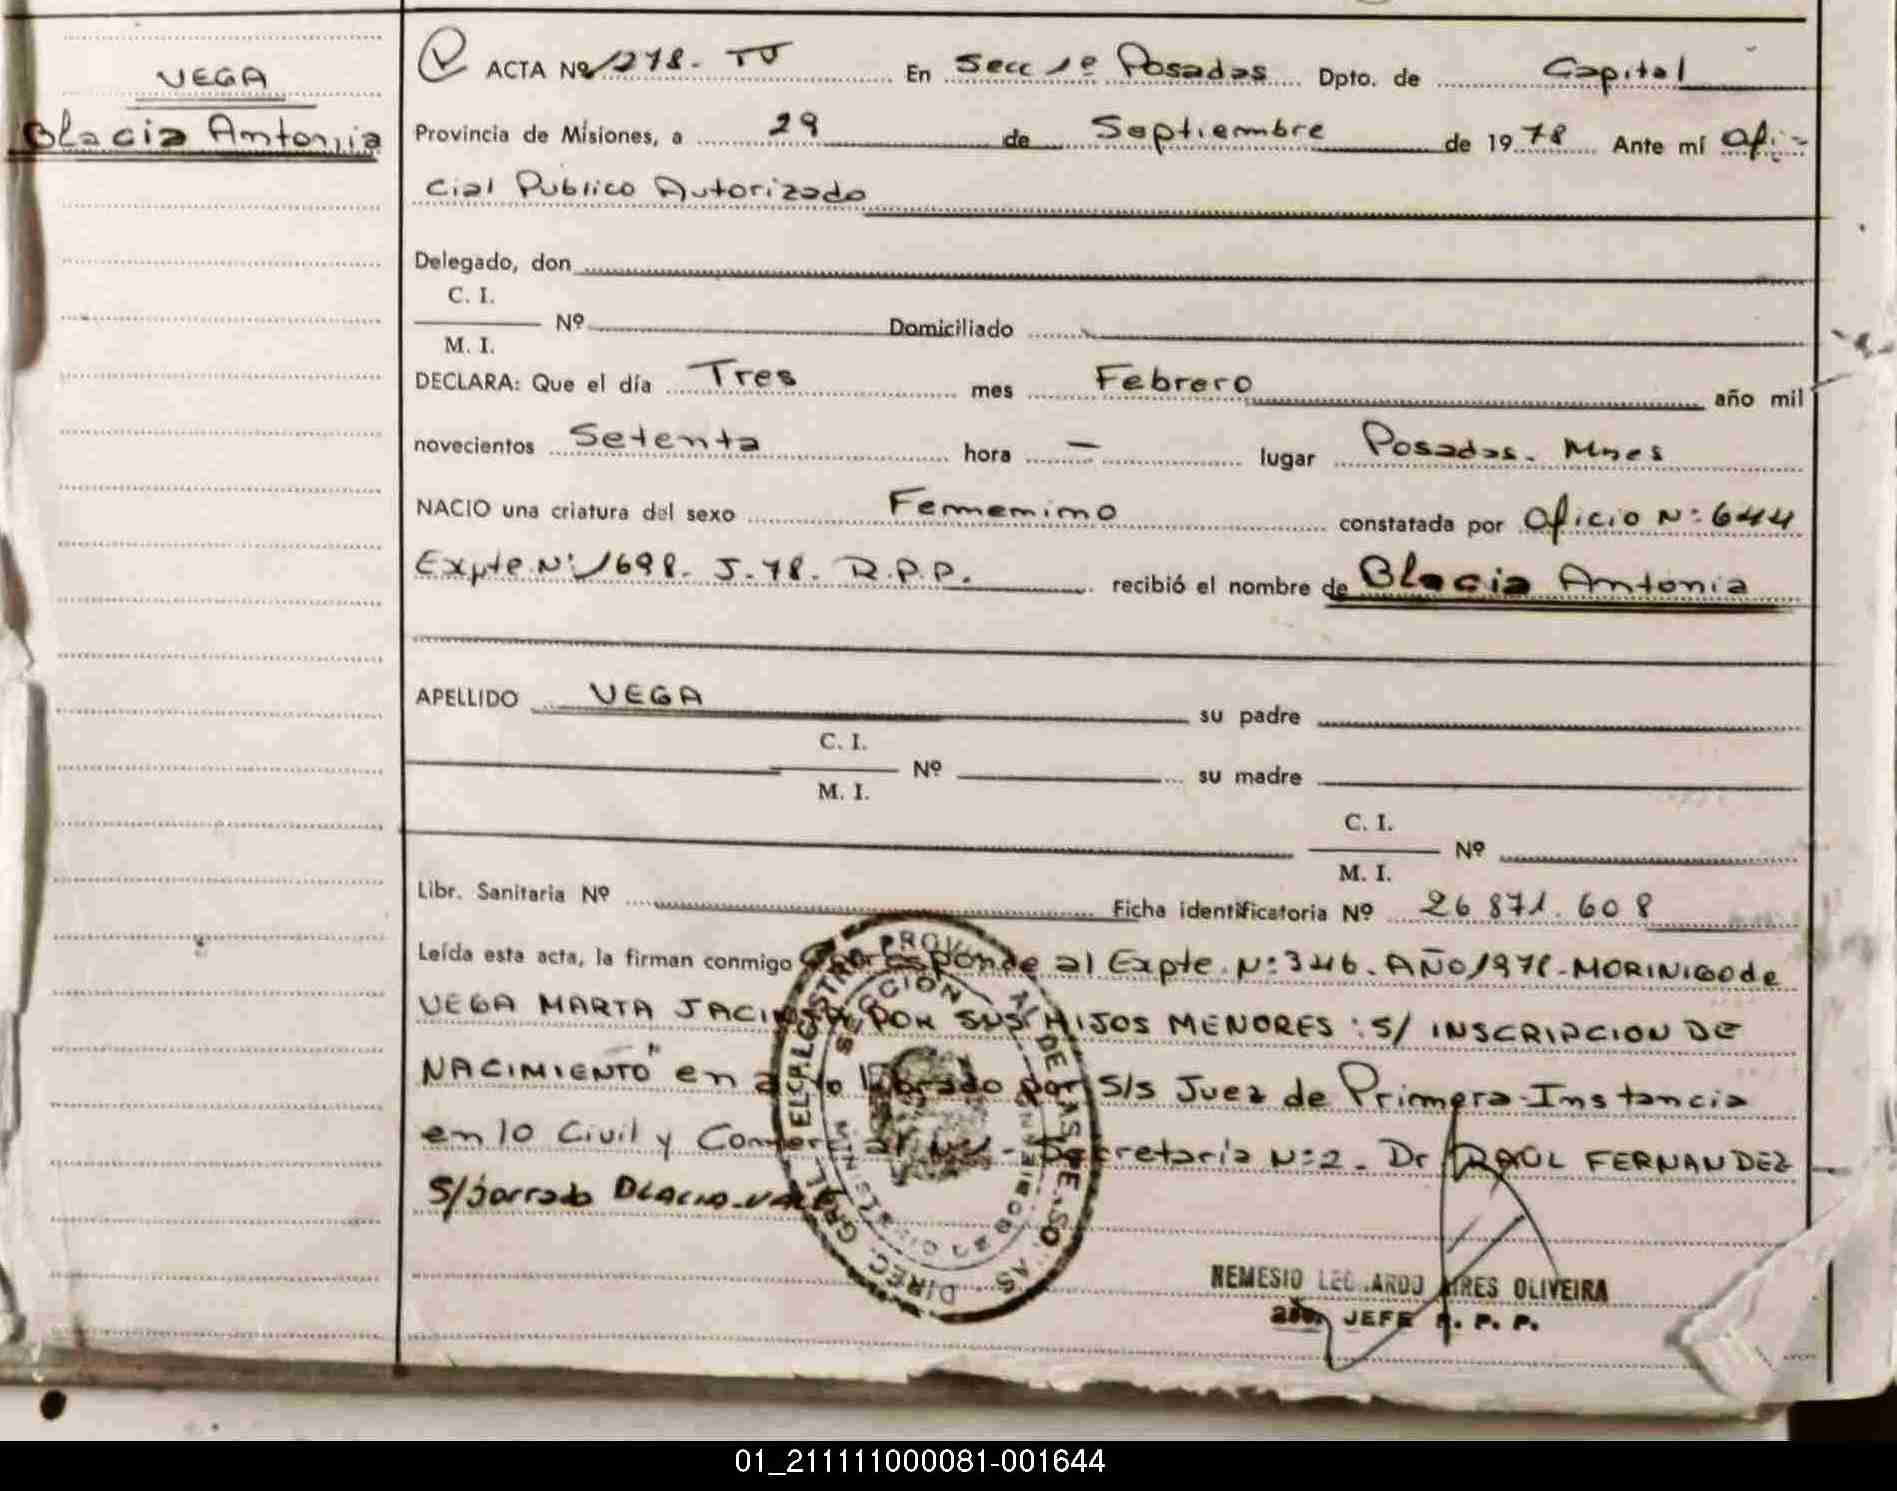 VEGA
Blacia Antonia
ACTA Nº 1278. TV En Secc 1º Posadas Dpto. de Capital
Provincia de Misiones, a 29 de Septiembre de 1978 Ante mí Ofi-
cial Publico Autorizado
Delegado, don
C. I.
Nº Domiciliado
M. I.
DECLARA: Que el día Tres mes Febrero año mil
novecientos Setenta hora — lugar Posadas. Mnes
NACIO una criatura del sexo Femenino constatada por Oficio N: 644
Expte. N: 1698. J-78. R.P.P. recibió el nombre de Blacia Antonia
APELLIDO VEGA su padre
C. I.
Nº su madre
M. I.
C. I.
Nº
M. I.
Libr. Sanitaria Nº Ficha identificatoria Nº 26 871. 608
Leída esta acta, la firman conmigo Corresponde al Expte. N: 346. AÑO 1978 - MORINIGO de
VEGA MARTA JACINTA POR SUS HIJOS MENORES: S/ INSCRIPCION DE
NACIMIENTO" en labrado por S/s Juez de Primera Instancia
en lo Civil y Comercial - Secretaria N:2. Dr RAUL FERNANDEZ
S/borrado Blacia. VALE
DIREC. GRAL. DEL REGISTRO PROVINCIAL DE LAS PERSONAS
SECCION
MINISTERIO DE GOBIERNO
NEMESIO LEONARDO AIRES OLIVEIRA
JEFE R. P. P.
01_211111000081-001644